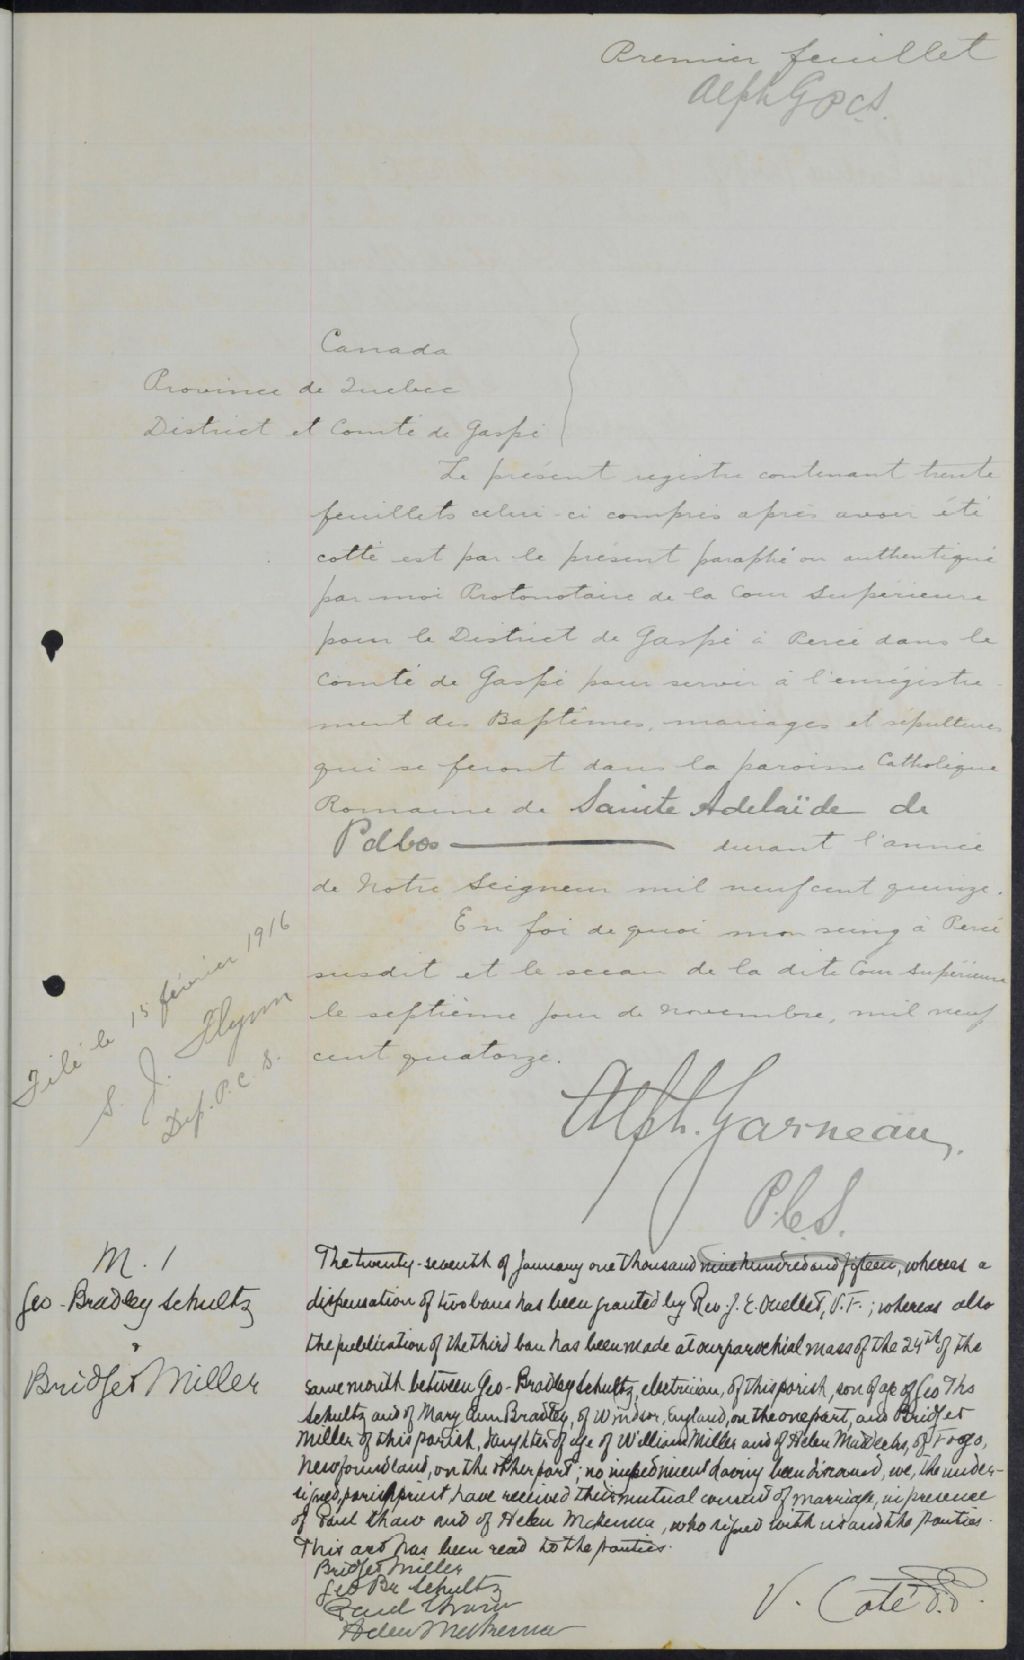 Premier feuillet
Alph G P C S.
Canada
Province de Quebec
District et Comté de Gaspé
Le présent registre contenant trente
feuillets celui-ci compris après avoir été
cotté est par le présent paraphé ou authentiqué
par moi Protonotaire de la Cour Supérieure
pour le District de Gaspé à Percé dans le
Comté de Gaspé pour servir à l'enrégistre-
ment des Baptêmes, mariages et sépultures
qui se feront dans la paroisse Catholique
Romaine de Sainte Adelaïde de
Pabos durant l'année
de Notre Seigneur mil neuf cent quinze.
En foi de quoi mon seing à Percé
susdit et le sceau de la dite Cour Supérieure
le septième jour de novembre, mil neuf
cent quatorze.
Alph. Garneau,
P.C.S.
Filé le 15 février 1916
S. J. Flynn
Dep. P. C. S.
M. 1
Geo-Bradley Schultz
&
Bridget Miller
The twenty-seventh of January one thousand nine hundred and fifteen, whereas a
dispensation of two bans has been granted by Rev. J. E. Ouellet, V.F.; whereas also
the publication of the third ban has been made at our parochial mass of the 24th of the
same month between Geo-Bradley Schultz, electrician, of this parish, son of age of Geo Ths
Schultz and of Mary Ann Bradley, of Windsor, England, on the one part, and Bridget
Miller of this parish, daughter of age of William Miller and of Helen of Fogo,
Newfoundland, on the other part; no impediment having been discovered, we, the under-
signed, parish priest have received their mutual consent of marriage, in presence
of Paul Shaw and of Helen McKenna, who signed with us and the parties.
This act has been read to the parties.
Bridget Miller
Geo Br Schultz
Paul Shaw
Helen McKenna
V. Coté P.P.